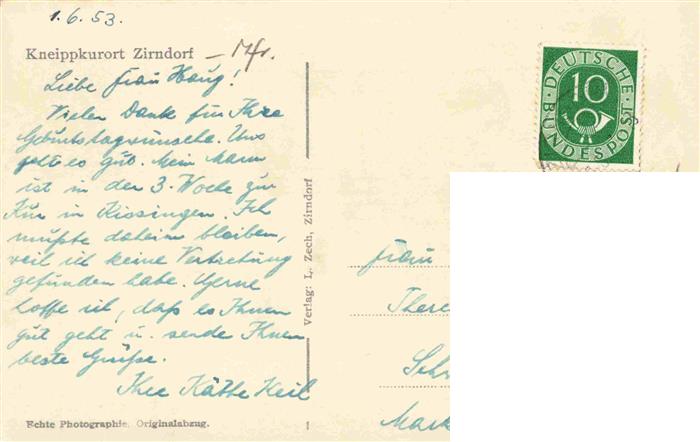 1.6.53.
Kneippkurort Zirndorf – Mfr.
Liebe Frau Haug!
Vielen Dank für Ihre
Geburtstagwünsche. Uns
geht es gut. Mein Mann
ist in der 3. Woche zur
Kur in Kissingen. Ich
mußte daheim bleiben,
weil ich keine Vertretung
gefunden habe. Gerne
hoffe ich, daß es Ihnen
gut geht u. sende Ihnen
beste Grüße.
Ihre Käthe Keil
Echte Photographie. Originalabzug.
Verlag: L. Zech, Zirndorf
DEUTSCHE
10
BUNDESPOST
Frau
There
Schr
Mark